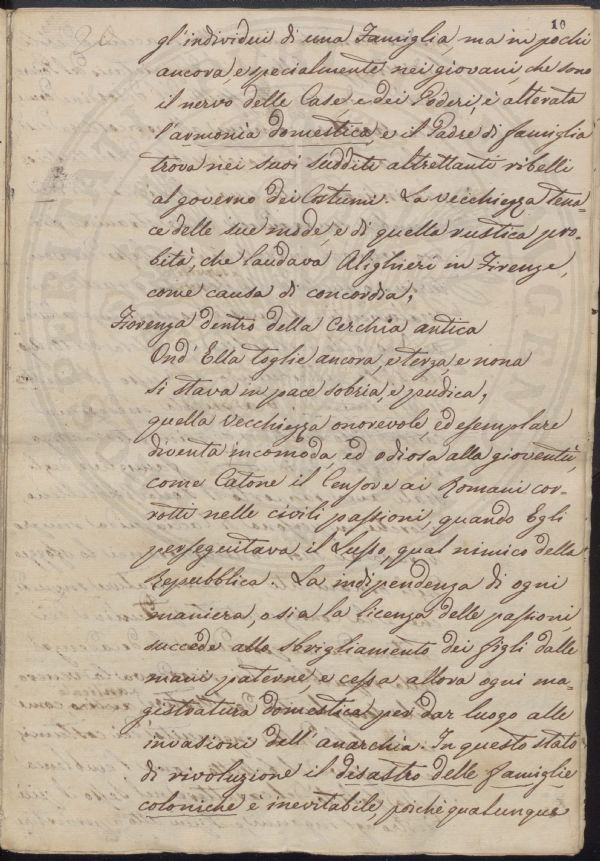 10
gl'individui di una Famiglia, ma in pochi
ancora e specialmente nei giovani, che sono
il nervo delle Case e dei Poderi, è alterata
l'armonia domestica e il Padre di famiglia
trova nei suoi sudditi altrettanti ribelli
al governo dei Costumi. La vecchiezza tena-
ce delle sue mode, e di quella rustica pro-
bità, che laudava Alighieri in Firenze,
come causa di concordia,
Fiorenza dentro della Cerchia antica
Ond' Ella toglie ancora, e terza e nona
si stava in pace sobria, e pudica,
quella vecchiezza onorevole, ed esemplare
diventa incomoda, ed odiosa alla gioventù
come Catone il Censore ai Romani cor-
rotti nelle civili passioni, quando Egli
perseguitava il Lusso, qual nimico della
Repubblica. La indipendenza di ogni
maniera, o sia la licenza delle passioni
succede allo sbrigliamento dei figli dalle
mani paterne, e cessa allora ogni ma-
gistratura domestica per dar luogo alle
invasioni dell'anarchia. In questo stato
di rivoluzione il disastro delle famiglie
coloniche è inevitabile, poichè qualunque